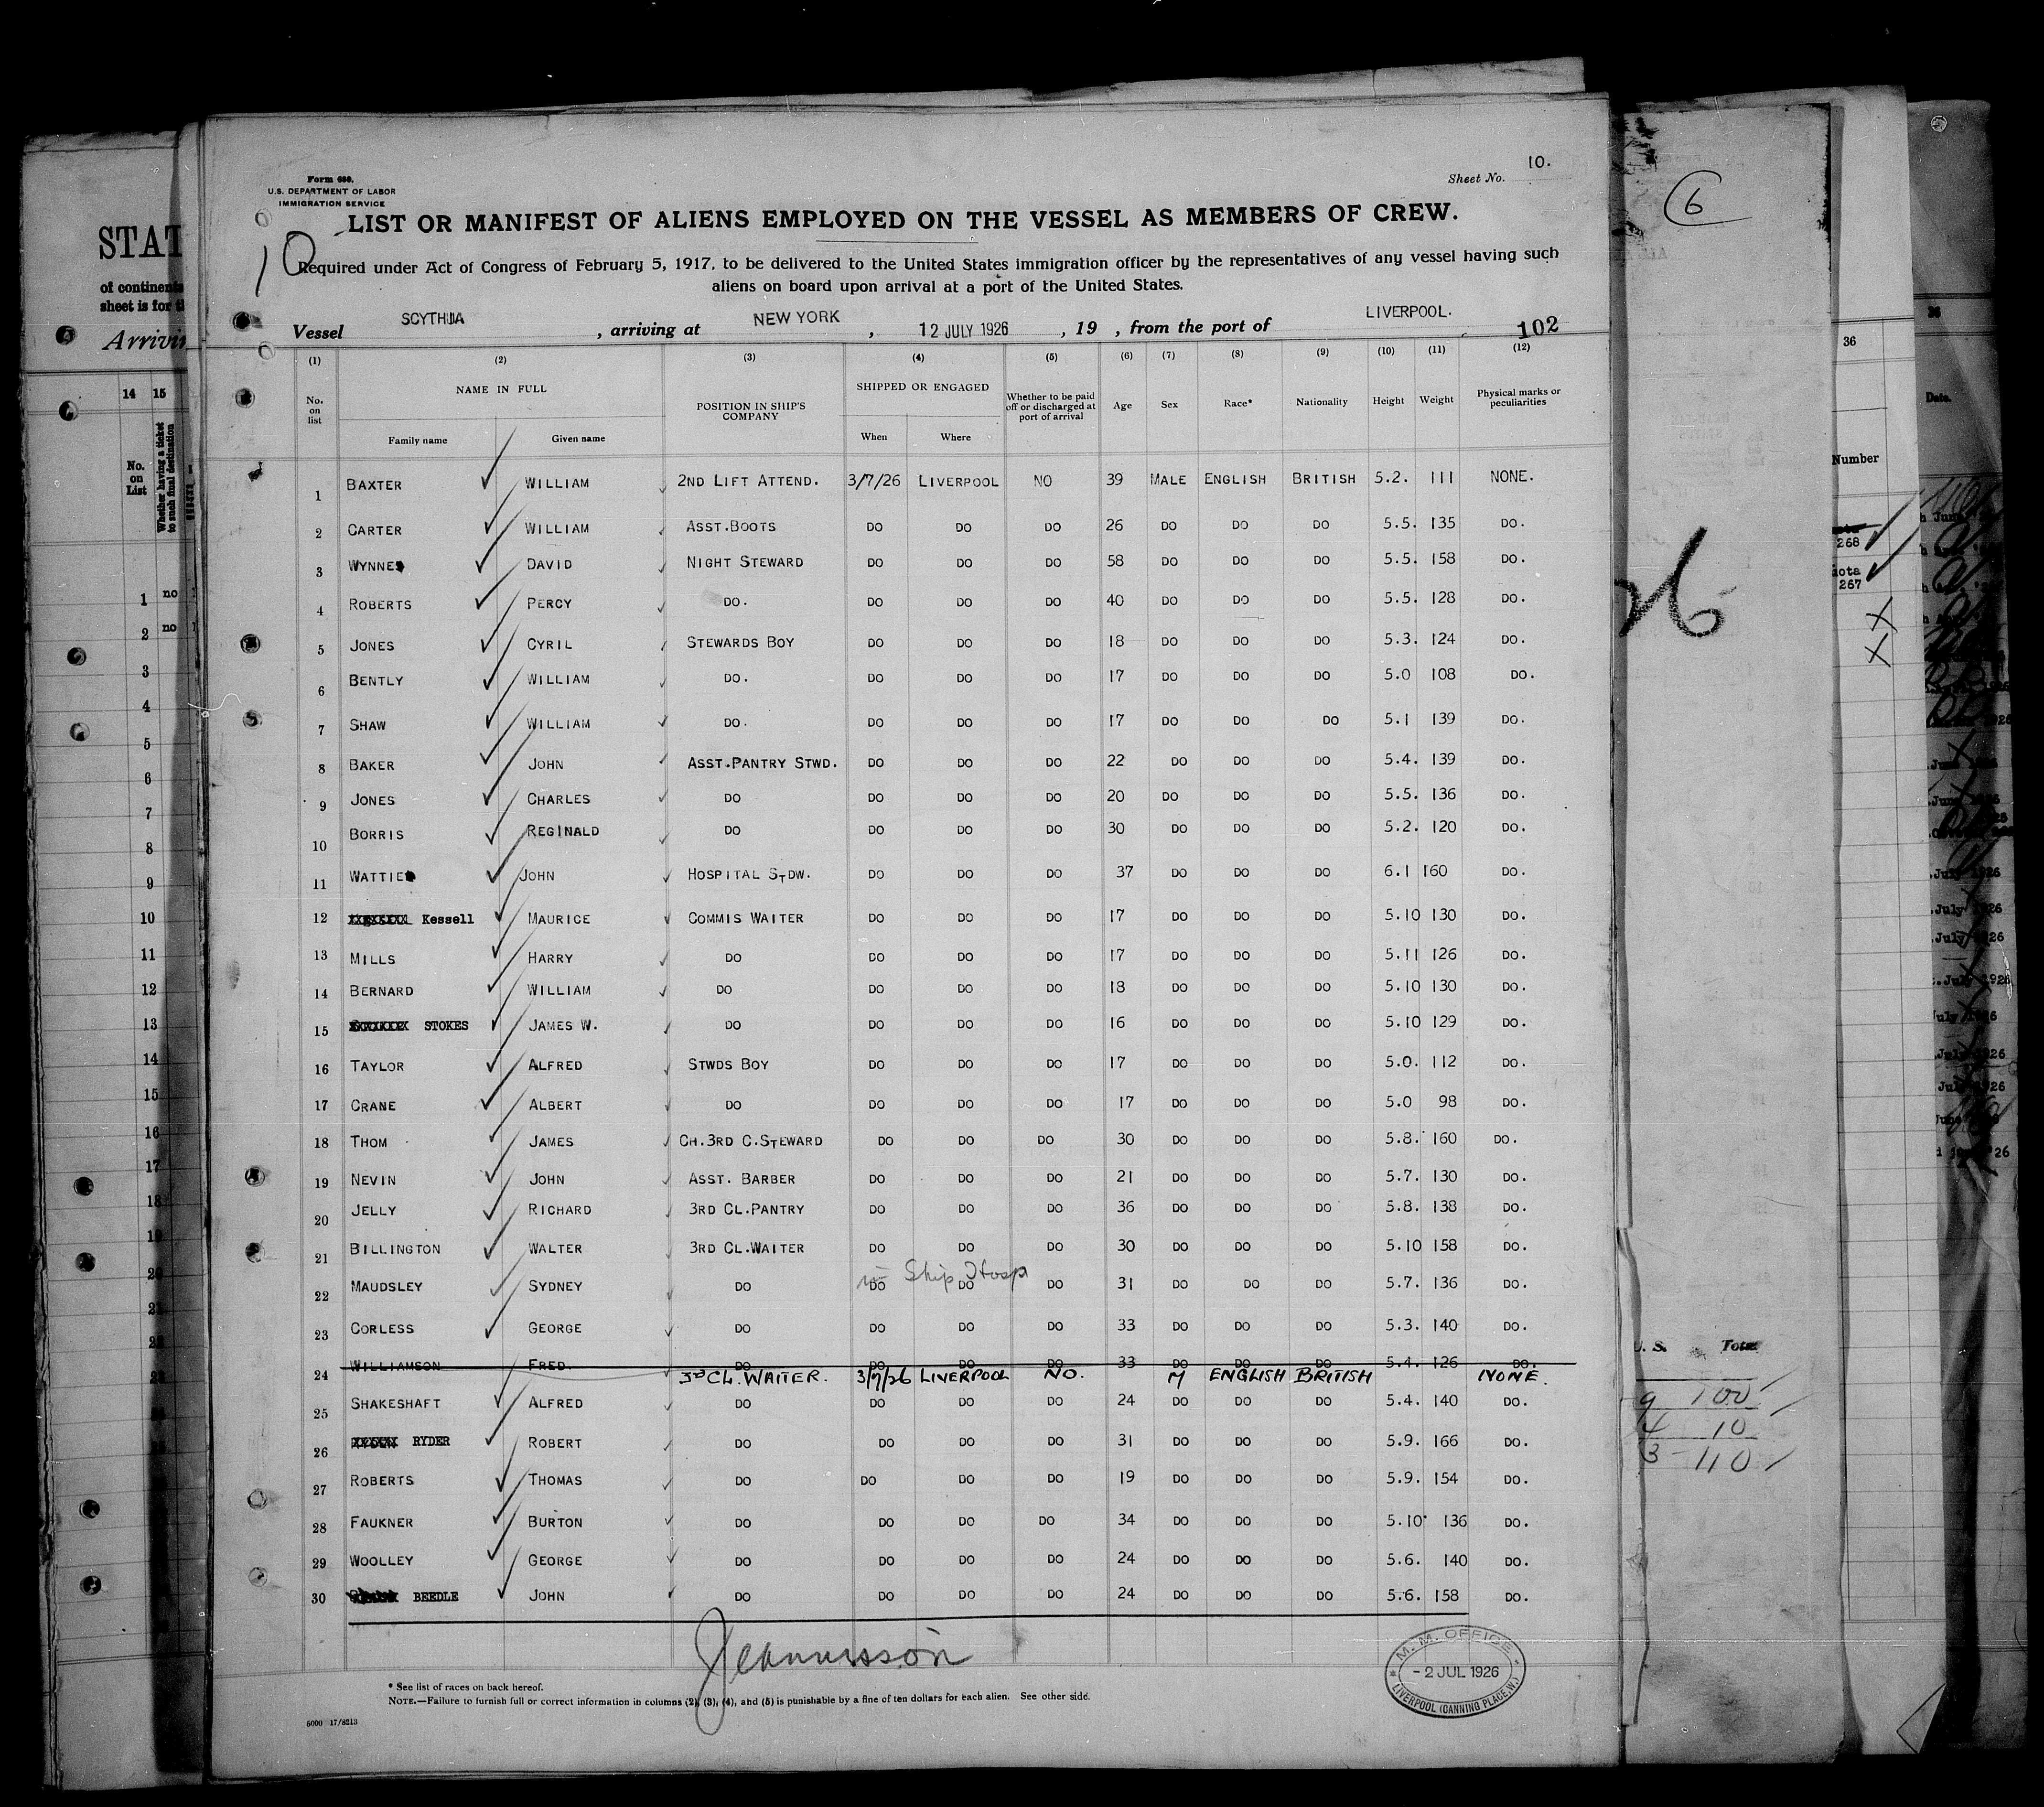 10.
Sheet No.
Form 680.
U.S. DEPARTMENT OF LABOR
IMMIGRATION SERVICE
LIST OR MANIFEST OF ALIENS EMPLOYED ON THE VESSEL AS MEMBERS OF CREW.
10
Required under Act of Congress of February 5, 1917, to be delivered to the United States immigration officer by the representatives of any vessel having such
aliens on board upon arrival at a port of the United States.
Vessel SCYTHIA , arriving at NEW YORK , 12 JULY 1926 , 19 , from the port of LIVERPOOL. 102
(1) (2) (3) (4) (5) (6) (7) (8) (9) (10) (11) (12)
No. on list NAME IN FULL Family name Given name POSITION IN SHIP'S COMPANY SHIPPED OR ENGAGED When Where Whether to be paid off or discharged at port of arrival Age Sex Race* Nationality Height Weight Physical marks or peculiarities
1 BAXTER WILLIAM 2ND LIFT ATTEND. 3/7/26 LIVERPOOL NO 39 MALE ENGLISH BRITISH 5.2. 111 NONE.
2 CARTER WILLIAM ASST.BOOTS DO DO DO 26 DO DO DO 5.5. 135 DO.
3 WYNNE DAVID NIGHT STEWARD DO DO DO 58 DO DO DO 5.5. 158 DO.
4 ROBERTS PERCY DO. DO DO DO 40 DO DO DO 5.5. 128 DO.
5 JONES CYRIL STEWARDS BOY DO DO DO 18 DO DO DO 5.3. 124 DO.
6 BENTLY WILLIAM DO. DO DO DO 17 DO DO DO 5.0 108 DO.
7 SHAW WILLIAM DO. DO DO DO 17 DO DO DO 5.1 139 DO.
8 BAKER JOHN ASST.PANTRY STWD. DO DO DO 22 DO DO DO 5.4. 139 DO.
9 JONES CHARLES DO DO DO DO 20 DO DO DO 5.5. 136 DO.
10 BORRIS REGINALD DO DO DO DO 30 DO DO DO 5.2. 120 DO.
11 WATTIE JOHN HOSPITAL STDW. DO DO DO 37 DO DO DO 6.1 160 DO.
12 Kessell MAURICE COMMIS WAITER DO DO DO 17 DO DO DO 5.10 130 DO.
13 MILLS HARRY DO DO DO DO 17 DO DO DO 5.11 126 DO.
14 BERNARD WILLIAM DO DO DO DO 18 DO DO DO 5.10 130 DO.
15 STOKES JAMES W. DO DO DO DO 16 DO DO DO 5.10 129 DO.
16 TAYLOR ALFRED STWDS BOY DO DO DO 17 DO DO DO 5.0. 112 DO.
17 CRANE ALBERT DO DO DO DO 17 DO DO DO 5.0 98 DO.
18 THOM JAMES CH.3RD C.STEWARD DO DO DO 30 DO DO DO 5.8. 160 DO.
19 NEVIN JOHN ASST. BARBER DO DO DO 21 DO DO DO 5.7. 130 DO.
20 JELLY RICHARD 3RD CL.PANTRY DO DO DO 36 DO DO DO 5.8. 138 DO.
21 BILLINGTON WALTER 3RD CL.WAITER DO DO DO 30 DO DO DO 5.10 158 DO.
in Ship Hosp
22 MAUDSLEY SYDNEY DO DO DO DO 31 DO DO DO 5.7. 136 DO.
23 CORLESS GEORGE DO DO DO DO 33 DO DO DO 5.3. 140 DO.
24 WILLIAMSON FRED. DO DO DO DO 33 DO DO DO 5.4. 126 DO.
3RD CL. WAITER. 3/7/26 LIVERPOOL NO. M ENGLISH BRITISH NONE.
25 SHAKESHAFT ALFRED DO DO DO DO 24 DO DO DO 5.4. 140 DO.
26 RYDER ROBERT DO DO DO DO 31 DO DO DO 5.9. 166 DO.
27 ROBERTS THOMAS DO DO DO DO 19 DO DO DO 5.9. 154 DO.
28 FAUKNER BURTON DO DO DO DO 34 DO DO DO 5.10 136 DO.
29 WOOLLEY GEORGE DO DO DO DO 24 DO DO DO 5.6. 140 DO.
30 BEEDLE JOHN DO DO DO DO 24 DO DO DO 5.6. 158 DO.
M. M. OFFICE
-2 JUL 1926
LIVERPOOL (CANNING PLACE, W.)
* See list of races on back hereof.
NOTE.—Failure to furnish full or correct information in columns (2), (3), (4), and (5) is punishable by a fine of ten dollars for each alien. See other side.
5000 17/8213
STAT
of continent
sheet is for
Arrivin
14 15
No. on List
Whether having a ticket to such final destination
1 no
2 no
3
4
5
6
7
8
9
10
11
12
13
14
15
16
17
18
19
20
21
22
23
6
26
U. S. Total
9 100
4 10
3 110
36
Number
268
267
36
Date.